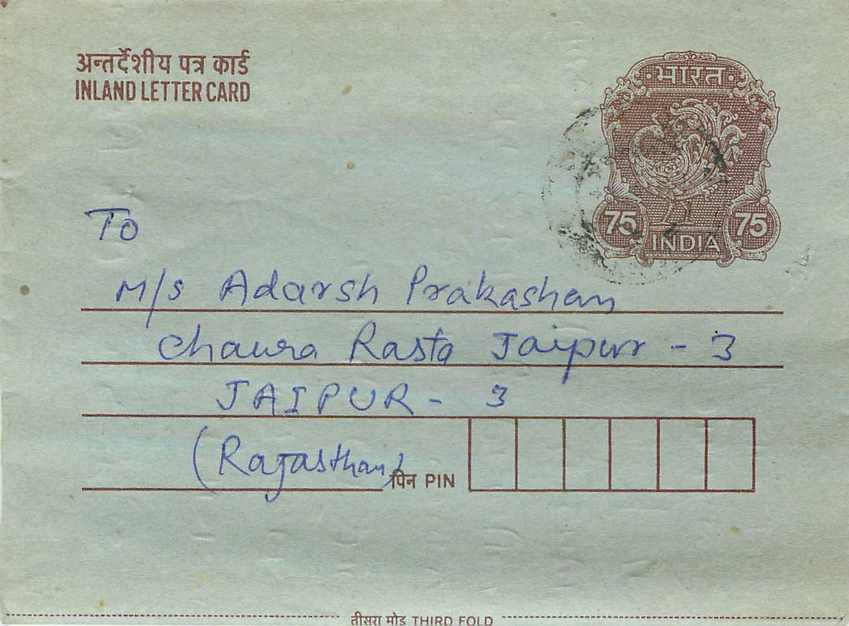 अन्तर्देशीय पत्र कार्ड
INLAND LETTER CARD
भारत
75 75
INDIA
To
M/s Adarsh Prakashan
Chaura Rasta Jaipur - 3
JAIPUR - 3
(Rajasthan)
पिन PIN
तीसरा मोड़ THIRD FOLD